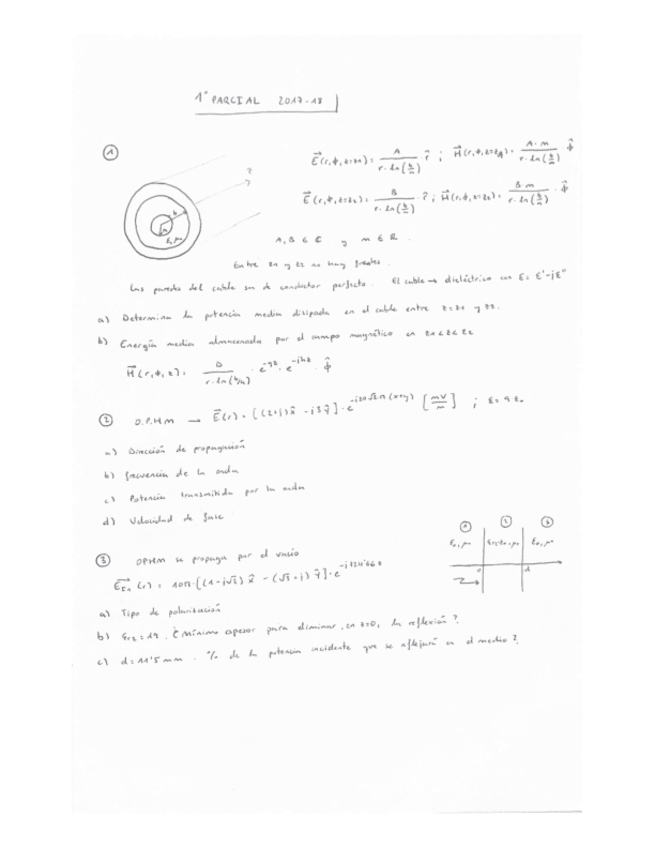 1º PARCIAL 2017-18
①
E⃗(r,ϕ,z=z₁) = A / (r·ln(b/a)) · r̂ ; H⃗(r,ϕ,z=z₁) = A·m / (r·ln(b/a)) · ϕ̂
E⃗(r,ϕ,z=z₂) = B / (r·ln(b/a)) · r̂ ; H⃗(r,ϕ,z=z₂) = B·m / (r·ln(b/a)) · ϕ̂
b
a
ε,μ₀
A, B ∈ ℂ y m ∈ ℝ.
Entre z₁ y z₂ no hay fuentes.
Las paredes del cable son de conductor perfecto. El cable → dieléctrico con ε = ε'-jε''
a) Determina la potencia media disipada en el cable entre z=z₁ y z₂.
b) Energía media almacenada por el campo magnético en z₁<z<z₂
H⃗(r,ϕ,z) = / (r·ln(b/a)) · ϕ̂
② O.P.H.M → E⃗(r) = [(2+j)x̂ - j3ŷ]· (x+y) [mV/m] ; ε=9ε₀
a) Dirección de propagación
b) Frecuencia de la onda
c) Potencia transmitida por la onda
d) Velocidad de fase
① ② ③
ε₀,μ₀ ε₀,μ₀
0 d
③ OPHM se propaga por el vacío
(r) = [(1-j√3) x̂ - (√3+j) ŷ]·
a) Tipo de polarización
b) εr₂=19. ¿Mínimo espesor para eliminar, en z=0, la reflexión?
c) d=11'5 mm. % de la potencia incidente que se reflejará en el medio?